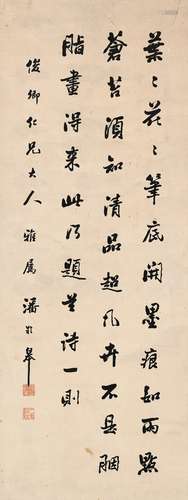 葉〻花〻筆底開墨痕如雨點
蒼苔須知清品超凡卉不是胭
脂畫得來此乃題蘭詩一則
俊卿仁兄大人雅屬潘齡皋